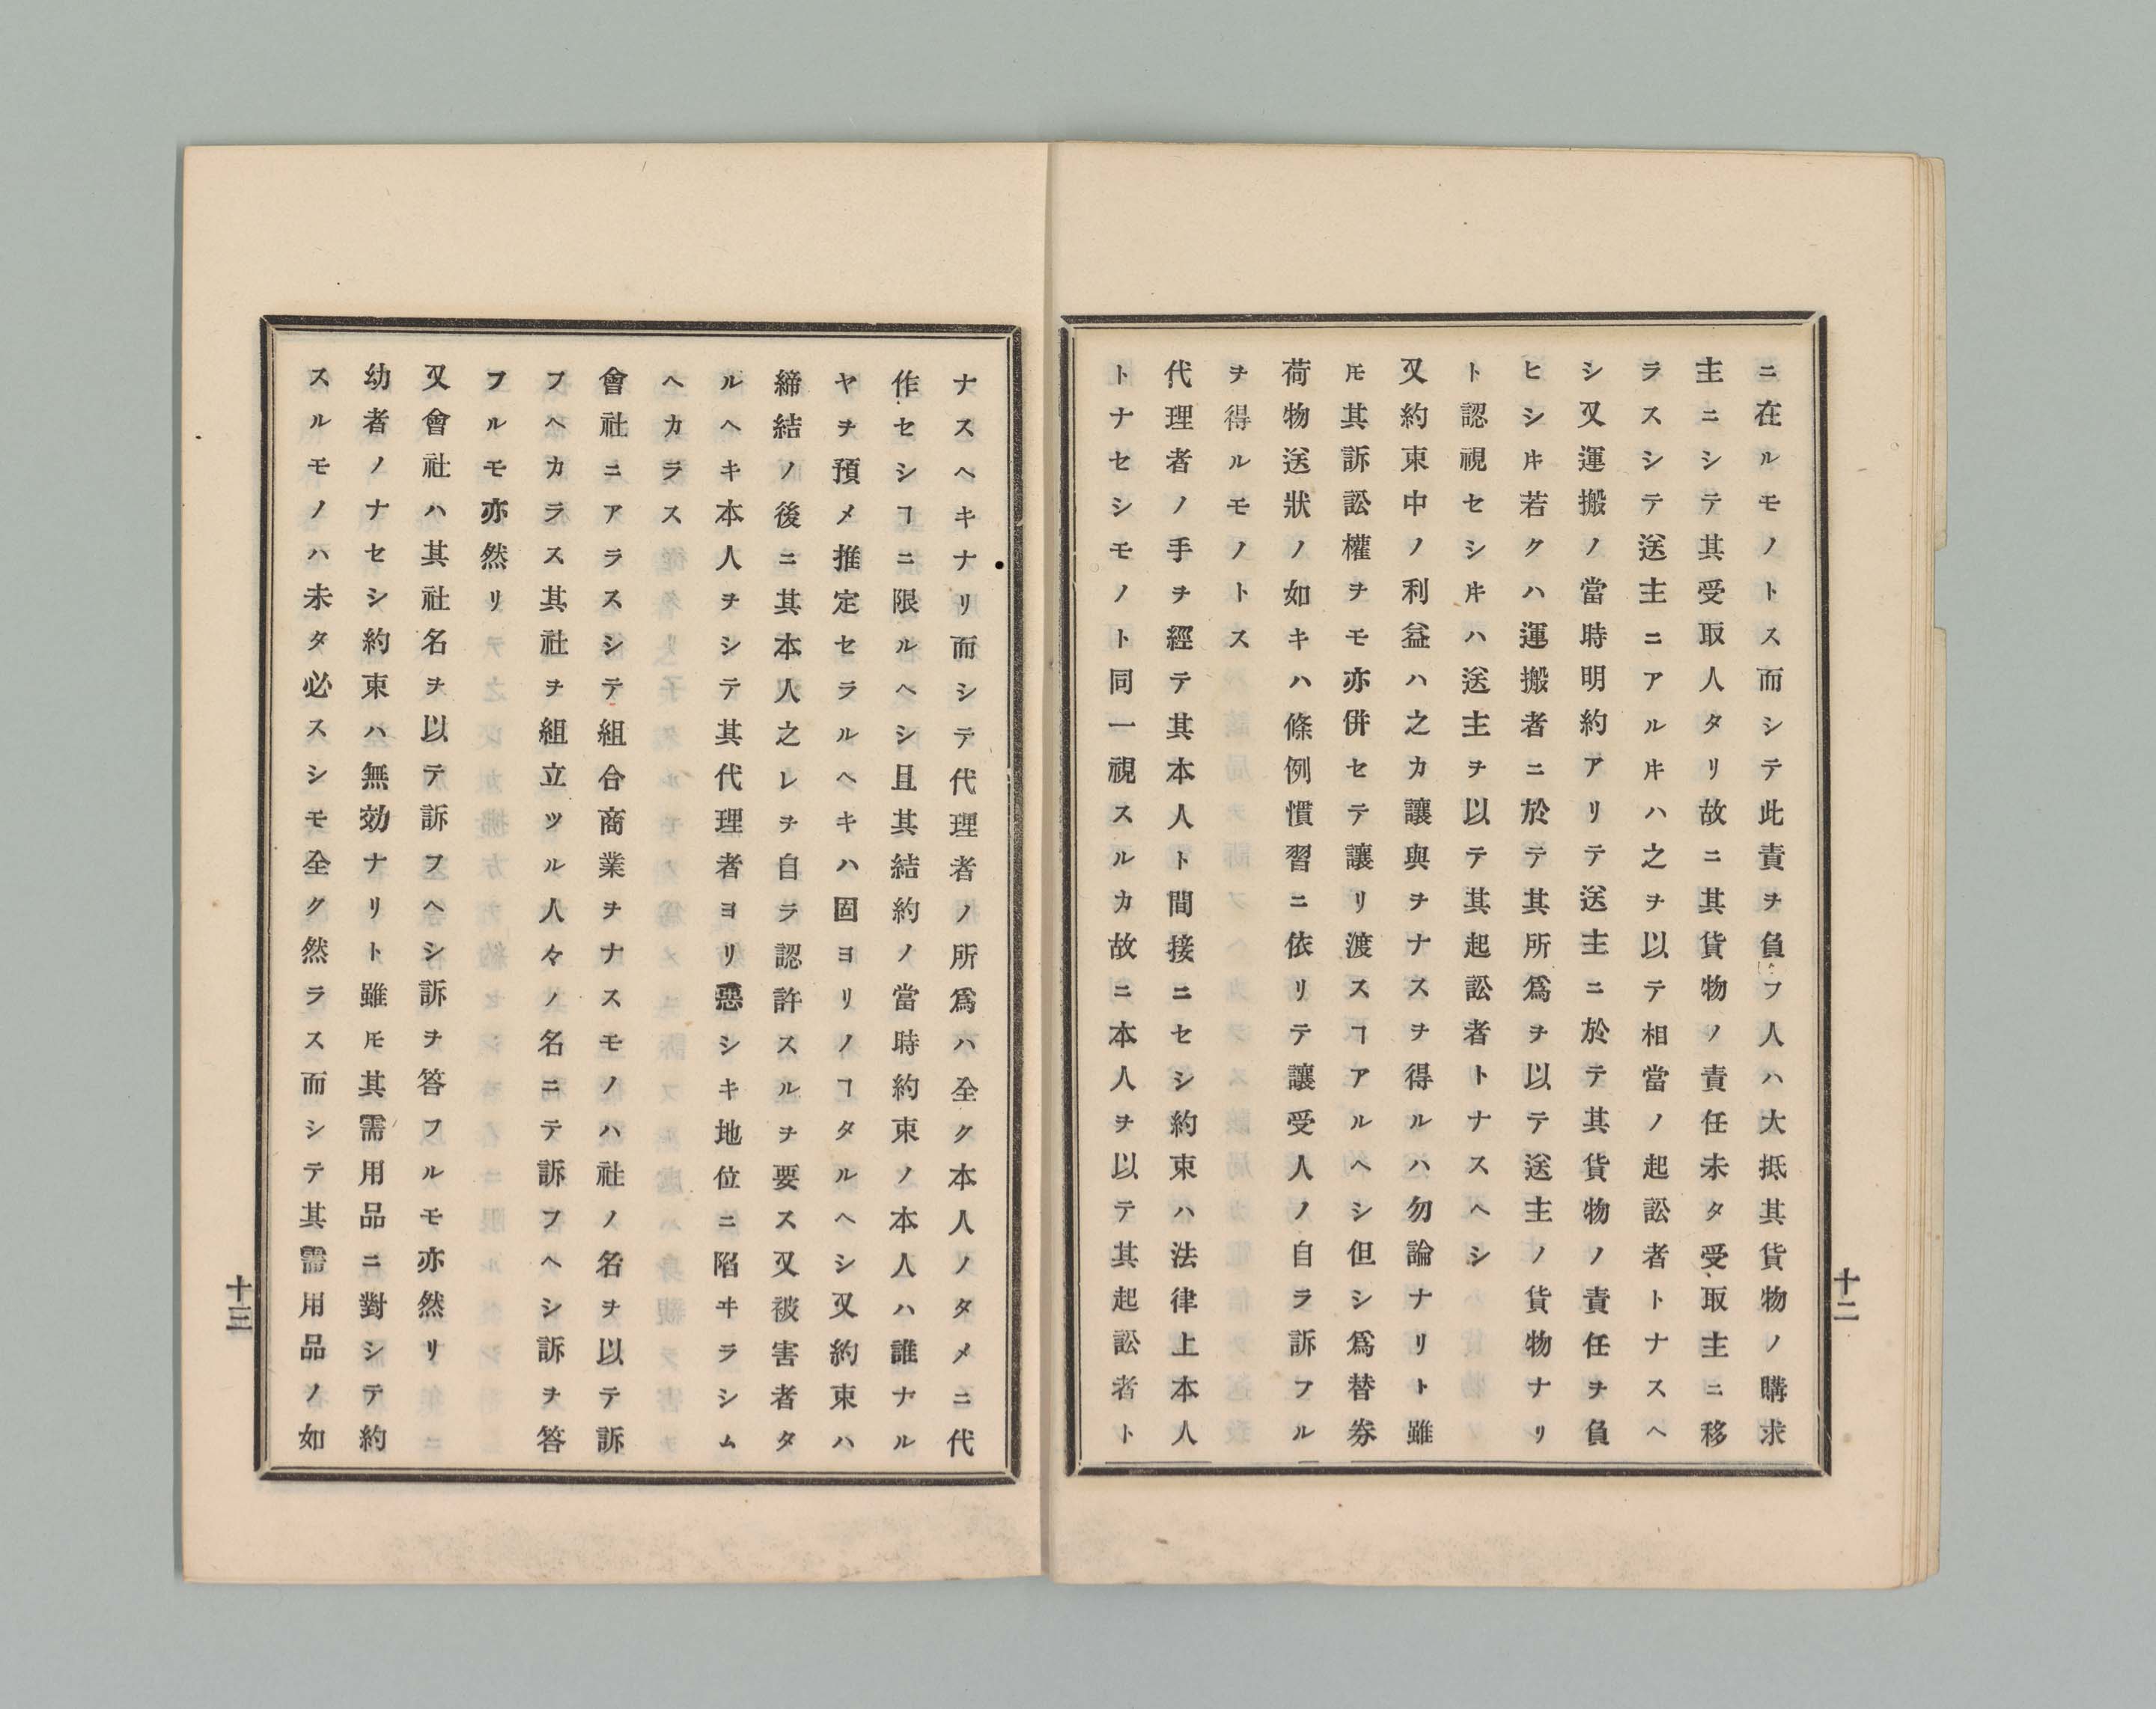 ニ在ルモノトス而シテ此責ヲ負フ人ハ大抵其貨物ノ購求
主ニシテ其受取人タリ故ニ其貨物ノ責任未タ受取主ニ移
ラスシテ送主ニアルㇳキハ之ヲ以テ相當ノ起訟者トナスヘ
シ又運搬ノ當時明約アリテ送主ニ於テ其貨物ノ責任ヲ負
ヒシㇳキ若クハ運搬者ニ於テ其所爲ヲ以テ送主ノ貨物ナリ
ト認視セシㇳキハ送主ヲ以テ其起訟者トナスヘシ
又約束中ノ利益ハ之カ讓與ヲナスヲ得ルハ勿論ナリト雖
𪜈其訴訟權ヲモ亦併セテ讓リ渡スヿアルヘシ但シ爲替券
荷物送狀ノ如キハ條例慣習ニ依リテ讓受人ノ自ラ訴フル
ヲ得ルモノトス
代理者ノ手ヲ經テ其本人ト間接ニセシ約束ハ法律上本人
トナセシモノト同一視スルカ故ニ本人ヲ以テ其起訟者ト
十二
ナスヘキナリ而シテ代理者ノ所爲ハ全ク本人ノタメニ代
作セシヿニ限ルヘシ且其結約ノ當時約束ノ本人ハ誰ナル
ヤヲ預メ推定セラルヘキハ固ヨリノヿタルヘシ又約束ハ
締結ノ後ニ其本人之レヲ自ラ認許スルヲ要ス又被害者タ
ルヘキ本人ヲシテ其代理者ヨリ惡シキ地位ニ陷ヰラシム
ヘカラス
會社ニアラスシテ組合商業ヲナスモノハ社ノ名ヲ以テ訴
フヘカラス其社ヲ組立ツル人々ノ名ニテ訴フヘシ訴ヲ答
フルモ亦然リ
又會社ハ其社名ヲ以テ訴フヘシ訴ヲ答フルモ亦然リ
幼者ノナセシ約束ハ無効ナリト雖𪜈其需用品ニ對シテ約
スルモノハ未タ必スシモ全ク然ラス而シテ其需用品ノ如
十三